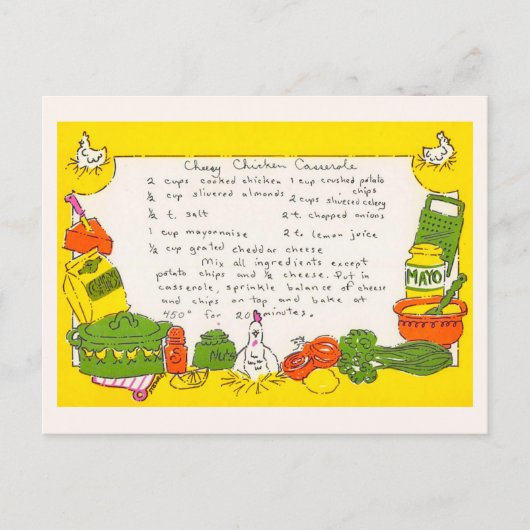 Cheesy Chicken Casserole
2 cups cooked chicken 1 cup crushed potato chips
½ cup slivered almonds 2 cups slivered celery
½ t. salt 2 t. chopped onions
1 cup mayonnaise 2 t. lemon juice
½ cup grated cheddar cheese
Mix all ingredients except
potato chips and ½ cheese. Put in
casserole, sprinkle balance of cheese
and chips on top and bake at
450° for 20 minutes.
MAYO
CHIPS
S
Nuts